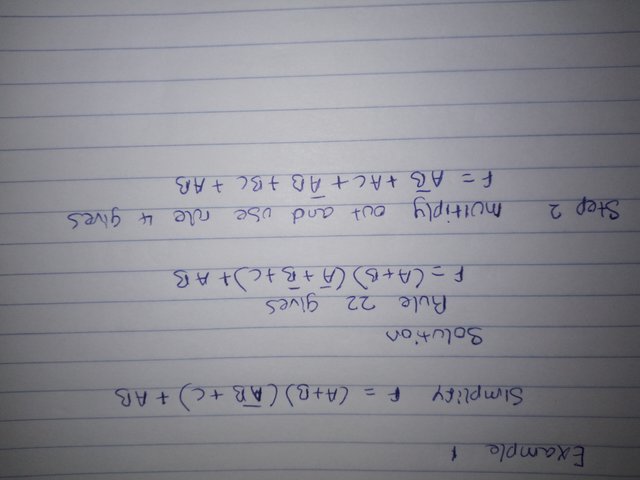 Example 1
Simplify F = (A+B)(A̅B̅ + C) + AB
Solution
Rule 22 gives
F = (A+B)(A̅+B̅+C) + AB
Step 2 multiply out and use rule 4 gives
F = AB̅ + AC + A̅B + BC + AB